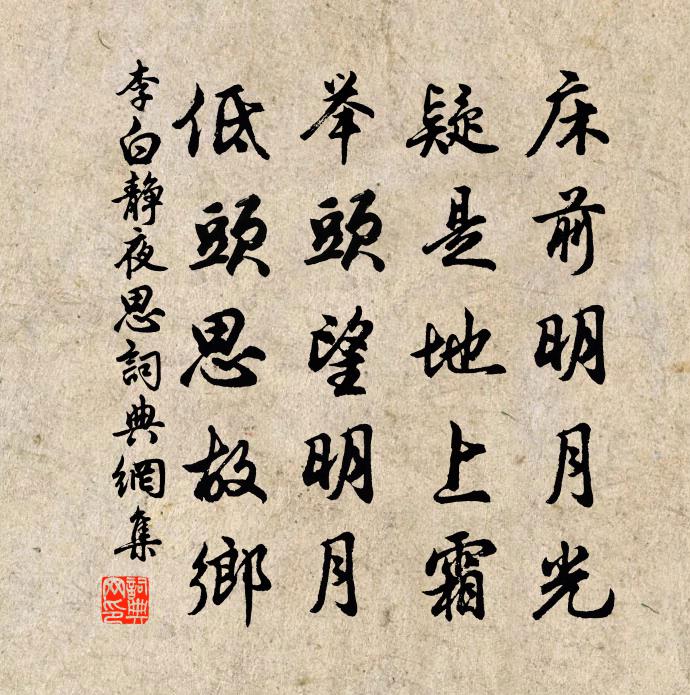 床前明月光
疑是地上霜
举頭望明月
低頭思故鄉
李白靜夜思詞典網集
詞典网印